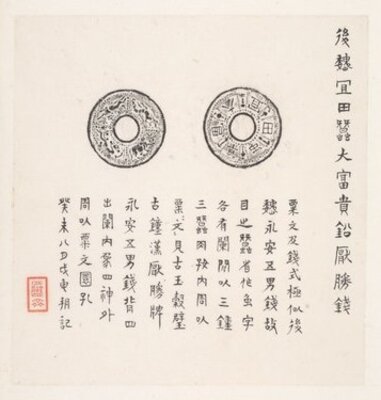 後魏宜田蠶大富貴鉛厭勝錢
粟文及錢式極似後
魏永安五男錢故
目之蠶省作魚字
各有闌間以三鐘
三蠶內周以
粟文見古玉穀璧
古鐘漢厭勝牌
永安五男錢背四
出闌內象四神外
周以粟文圜孔
癸未八月戊朔記